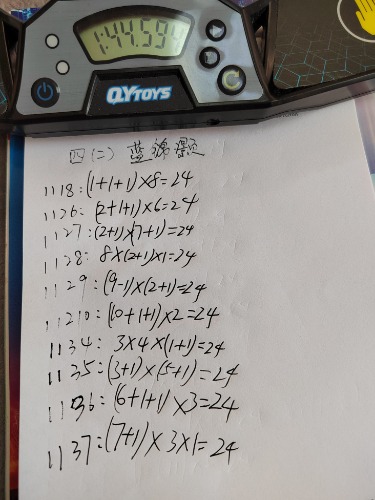 1:44.594
QYTOYS
四(二) 蓝锦题
1118:(1+1+1)×8=24
1126:(2+1+1)×6=24
1127:(2+1)×(7+1)=24
1128: 8×(2+1)×1=24
1129:(9-1)×(2+1)=24
11210:(10+1+1)×2=24
1134: 3×4×(1+1)=24
1135:(3+1)×(5+1)=24
1136:(6+1+1)×3=24
1137:(7+1)×3×1=24